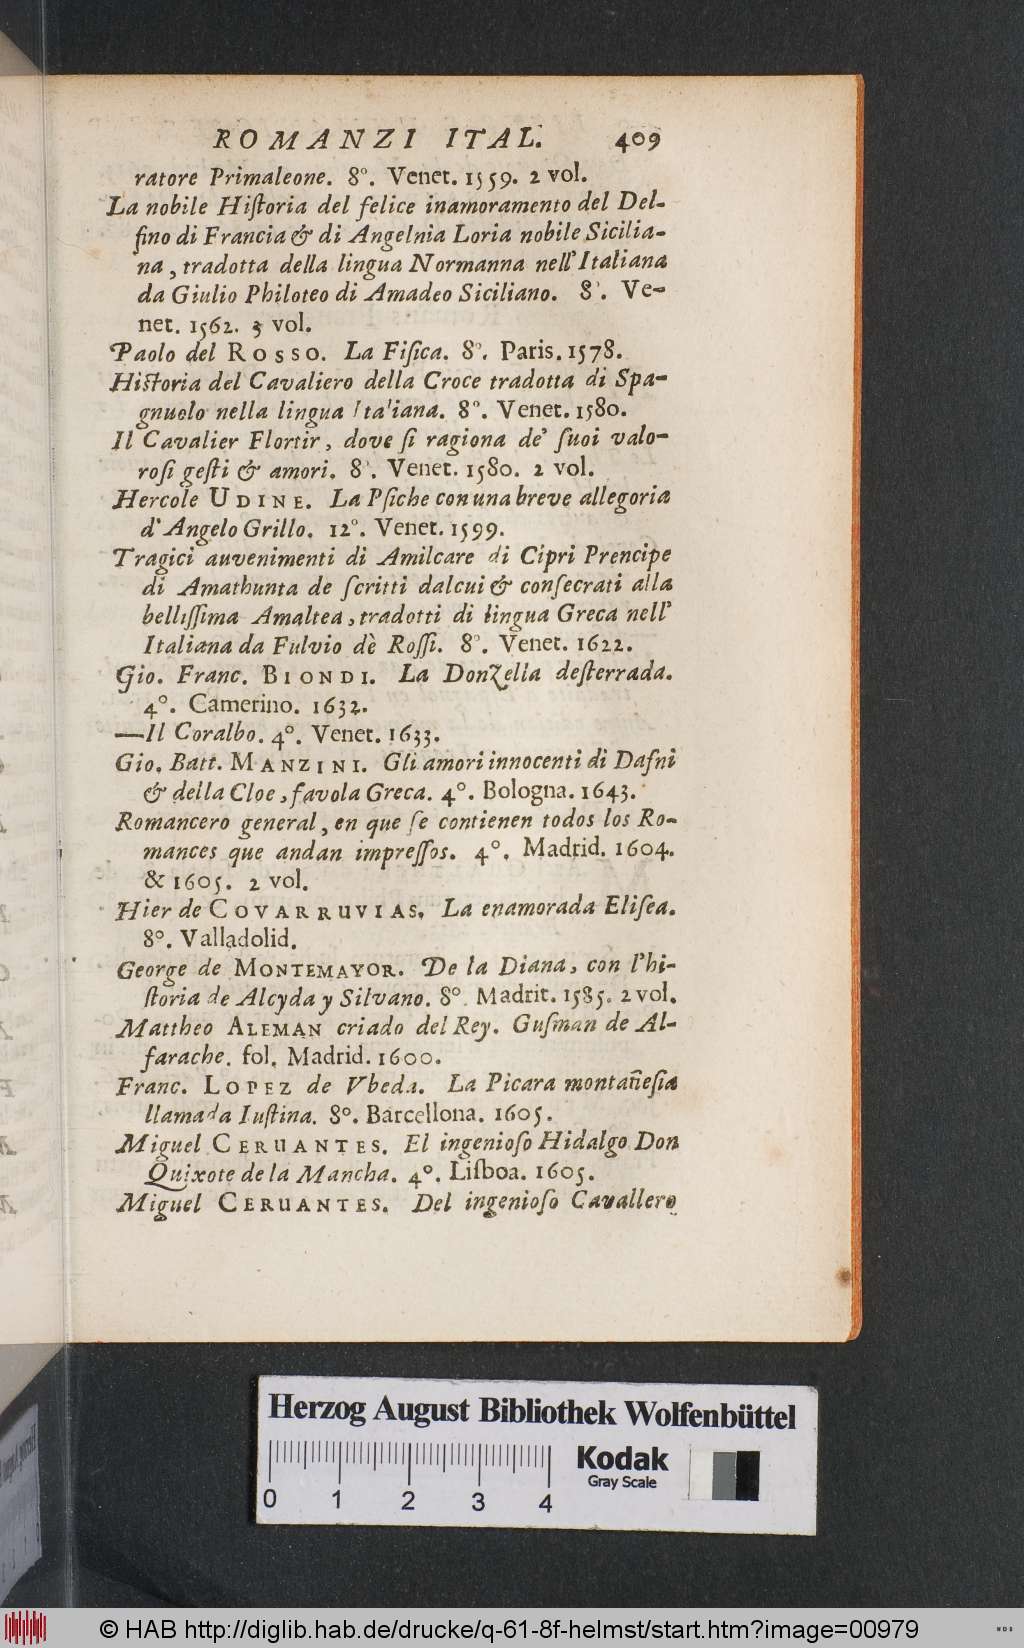 ROMANZI ITAL. 409
ratore Primaleone. 8°. Venet. 1559. 2 vol.
La nobile Hiſtoria del felice inamoramento del Del-
fino di Francia & di Angelnia Loria nobile Sicilia-
na, tradotta della lingua Normanna nell' Italiana
da Giulio Philoteo di Amadeo Siciliano. 8°. Ve-
net. 1562. 3 vol.
Paolo del ROSSO. La Fiſica. 8°. Paris. 1578.
Hiſtoria del Cavaliero della Croce tradotta di Spa-
gnuolo nella lingua Italiana. 8°. Venet. 1580.
Il Cavalier Flortir, dove ſi ragiona de' ſuoi valo-
roſi geſti & amori. 8°. Venet. 1580. 2 vol.
Hercole UDINE. La Pſiche con una breve allegoria
d' Angelo Grillo. 12°. Venet. 1599.
Tragici auvenimenti di Amilcare di Cipri Prencipe
di Amathunta de ſcritti dalcui & conſecrati alla
belliſſima Amaltea, tradotti di lingua Greca nell'
Italiana da Fulvio dè Roſſi. 8°. Venet. 1622.
Gio. Franc. BIONDI. La Donzella deſterrada.
4°. Camerino. 1632.
—Il Coralbo. 4°. Venet. 1633.
Gio. Batt. MANZINI. Gli amori innocenti di Dafni
& della Cloe, favola Greca. 4°. Bologna. 1643.
Romancero general, en que ſe contienen todos los Ro-
mances que andan impreſſos. 4°. Madrid. 1604.
& 1605. 2 vol.
Hier de COVARRUVIAS. La enamorada Eliſea.
8°. Valladolid.
George de MONTEMAYOR. De la Diana, con l'hi-
ſtoria de Alcyda y Silvano. 8°. Madrit. 1585. 2 vol.
Mattheo ALEMAN criado del Rey. Guſman de Al-
farache. fol. Madrid. 1600.
Franc. LOPEZ de Vbeda. La Picara montañeſia
llamada Iuſtina. 8°. Barcellona. 1605.
Miguel CERUANTES. El ingenioſo Hidalgo Don
Quixote de la Mancha. 4°. Liſboa. 1605.
Miguel CERUANTES. Del ingenioſo Cavallero
Herzog August Bibliothek Wolfenbüttel
Kodak
Gray Scale
0 1 2 3 4
© HAB http://diglib.hab.de/drucke/q-61-8f-helmst/start.htm?image=00979